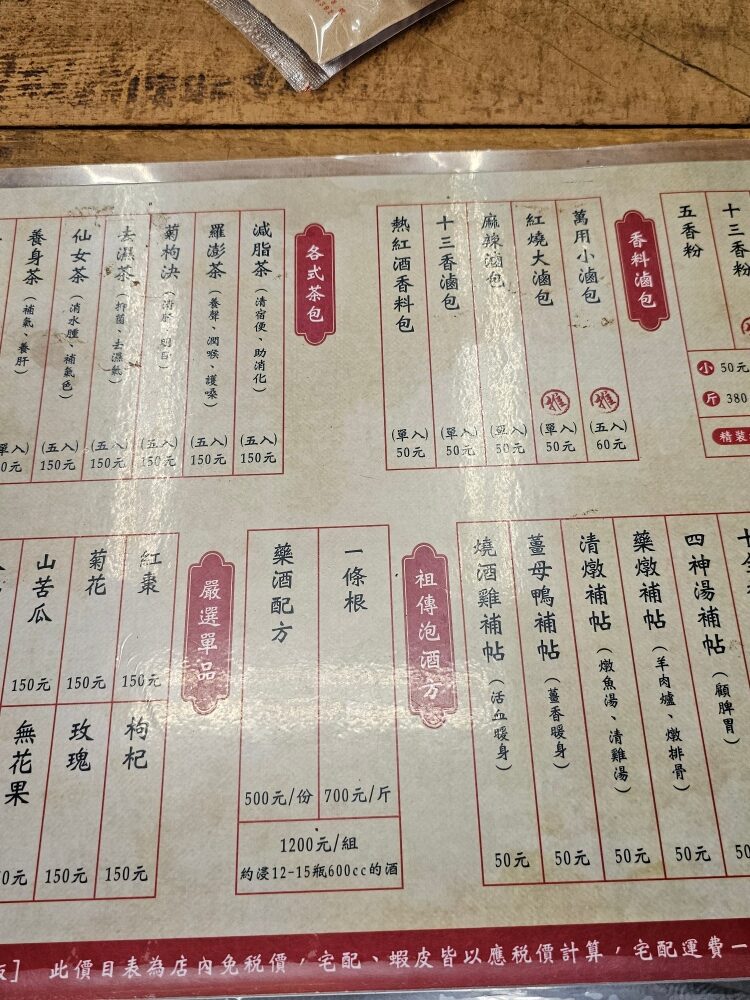 十三香粉
五香粉
小 50元
斤 380
精裝
香料滷包
萬用小滷包 推 (五入) 60元
紅燒大滷包 推 (單入) 50元
麻辣滷包 (單入) 50元
十三香滷包 (單入) 50元
熱紅酒香料包 (單入) 50元
各式茶包
減脂茶(清宿便、助消化) (五入) 150元
羅澎茶(養聲、潤喉、護嗓) (五入) 150元
菊枸決(清肝、明目) (五入) 150元
去濕茶(抑菌、去濕氣) (五入) 150元
仙女茶(消水腫、補氣色) (五入) 150元
養身茶(補氣、養肝) 單入) 0元
四神湯補帖(顧脾胃) 50元
藥燉補帖(羊肉爐、燉排骨) 50元
清燉補帖(燉魚湯、清雞湯) 50元
薑母鴨補帖(薑香暖身) 50元
燒酒雞補帖(活血暖身) 50元
祖傳泡酒方
一條根 700元/斤
藥酒配方 500元/份
1200元/組
約浸12-15瓶600cc的酒
嚴選單品
紅棗 150元
菊花 150元
山苦瓜 150元
枸杞 150元
玫瑰 150元
無花果 0元
版] 此價目表為店內免稅價,宅配、蝦皮皆以應稅價計算,宅配運費一